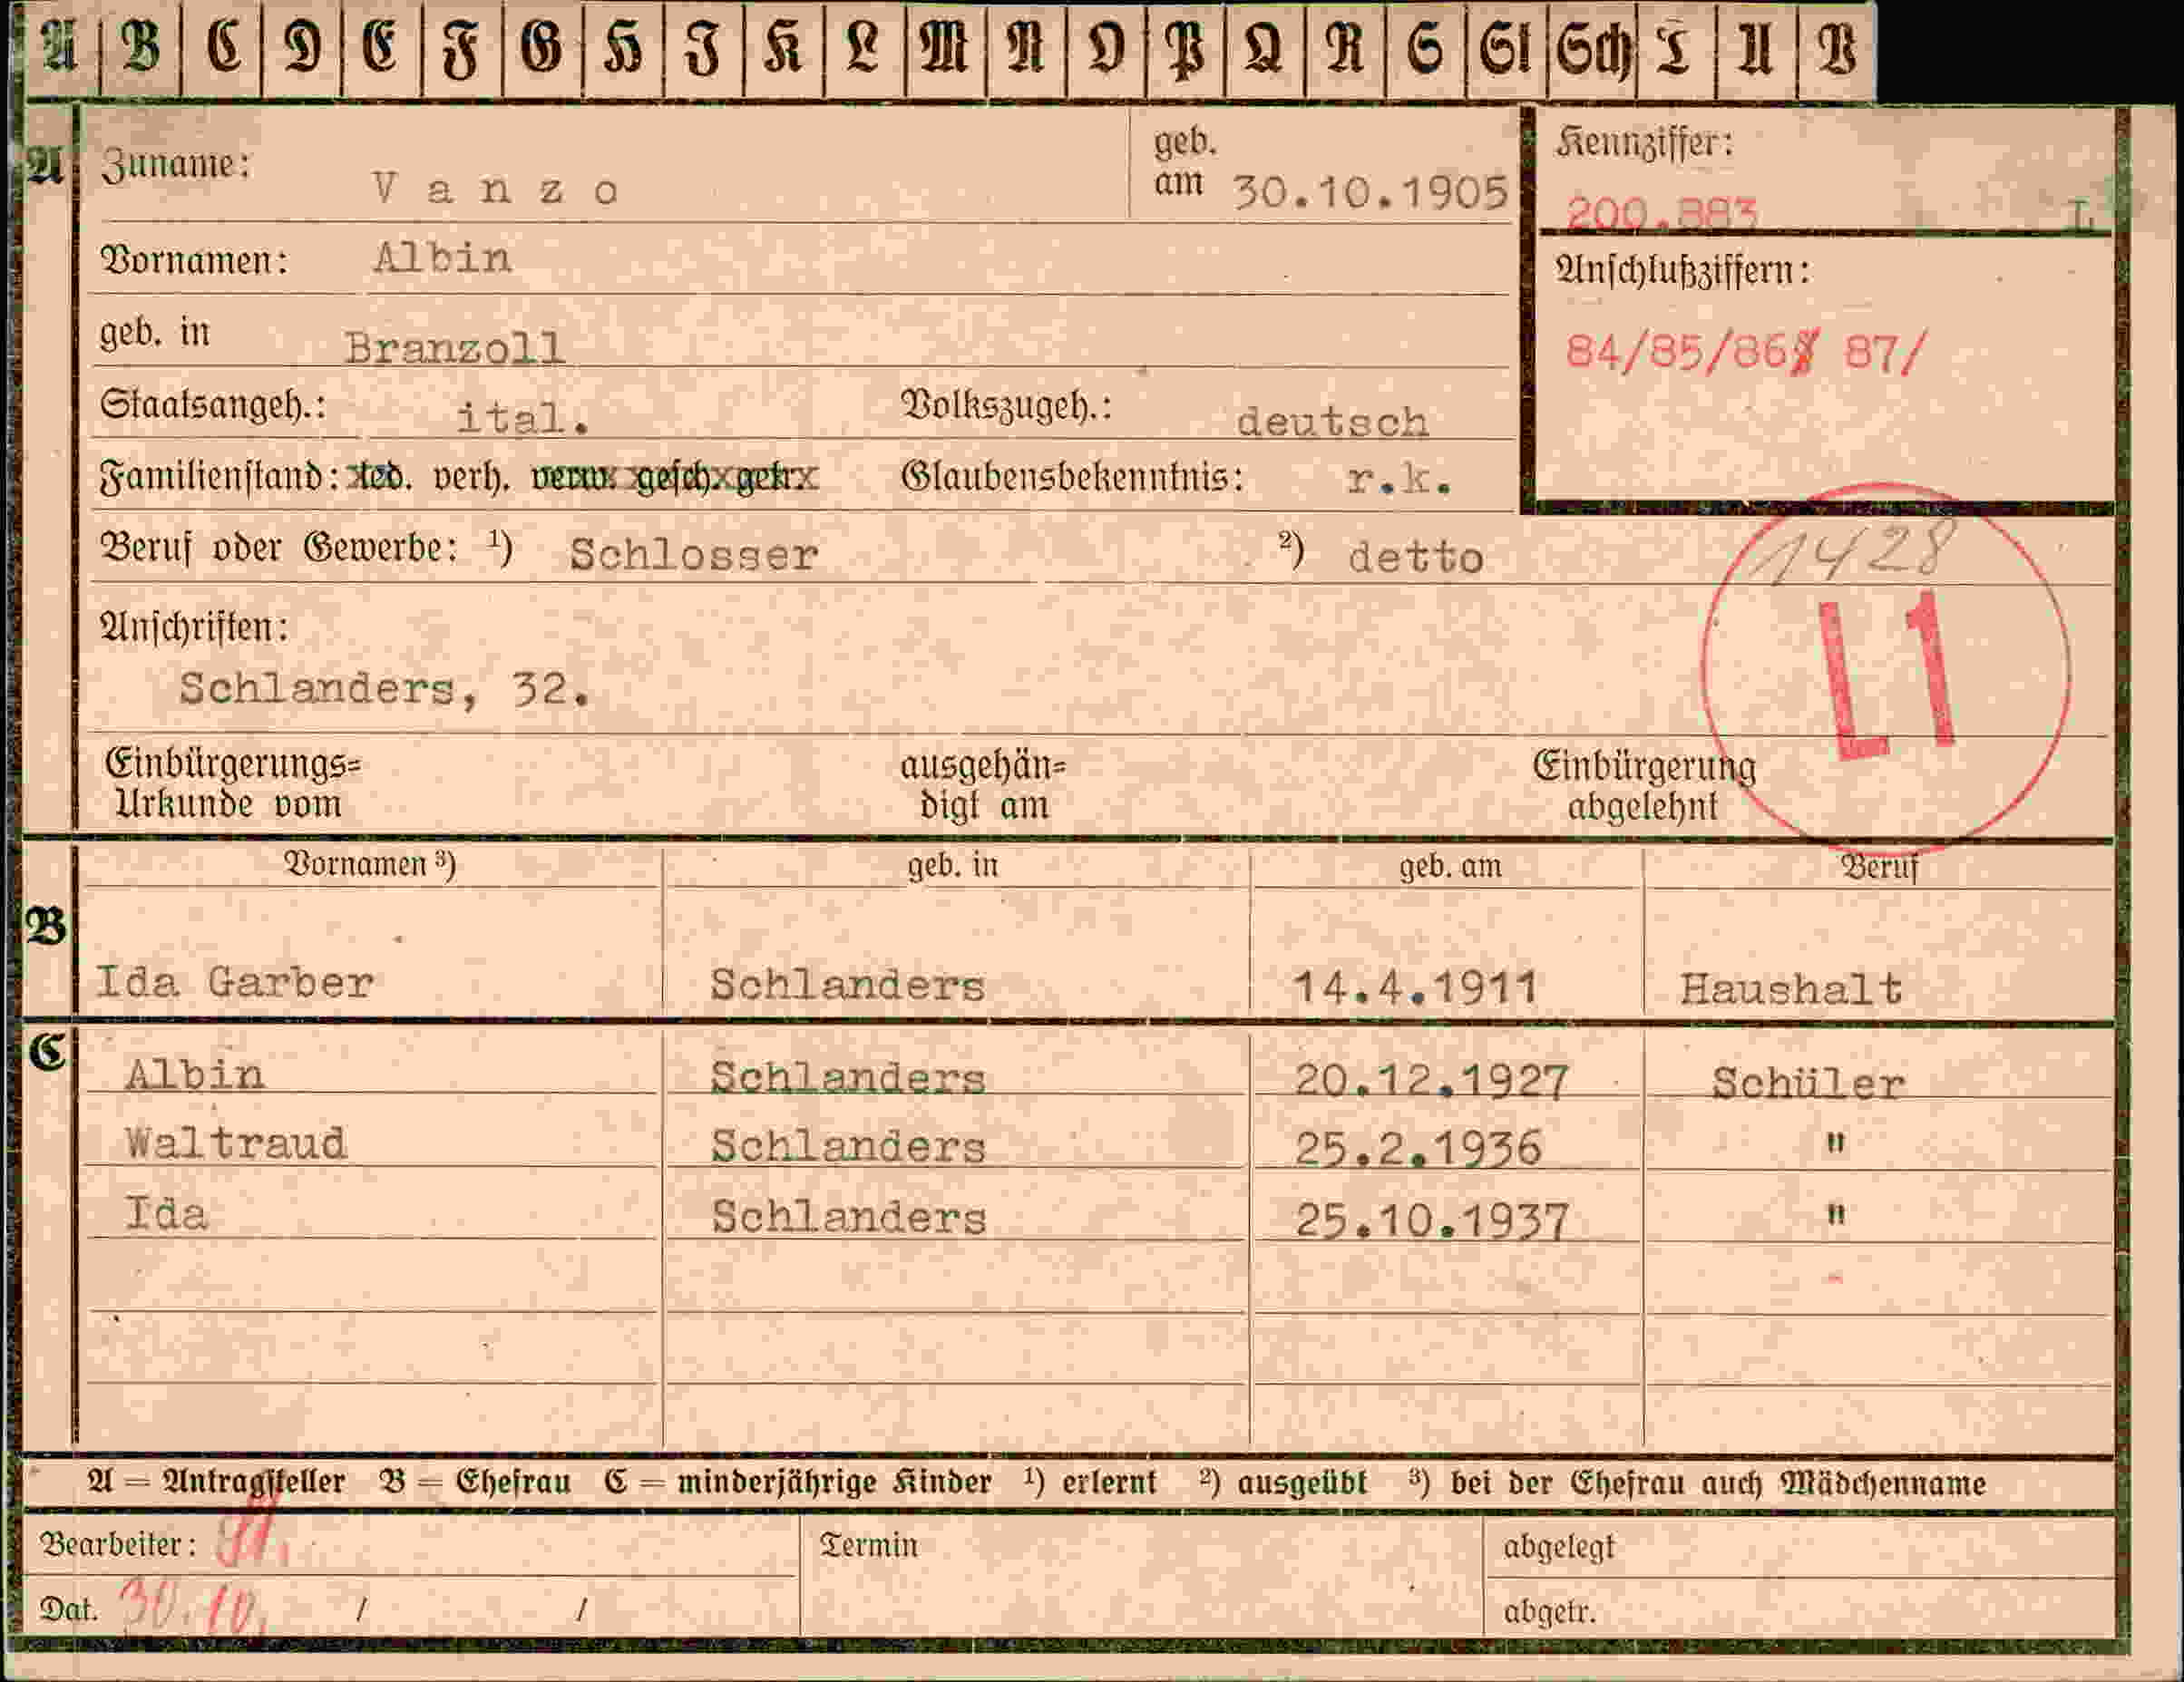 A B C D E F G H J K L M N O P Q R S St Sch T U V
A Zuname: Vanzo geb. am 30.10.1905
Kennziffer: 200.883 L
Vornamen: Albin
Anschlußziffern:
geb. in Branzoll
84/85/86/ 87/
Staatsangeh.: ital. Volkszugeh.: deutsch
Familienstand: led. verh. verw. gesch. getr. Glaubensbekenntnis: r.k.
Beruf oder Gewerbe: ¹) Schlosser ²) detto
1428
L1
Anschriften:
Schlanders, 32.
Einbürgerungs= ausgehän= Einbürgerung
Urkunde vom digt am abgelehnt
Vornamen ³) geb. in geb. am Beruf
B
Ida Garber Schlanders 14.4.1911 Haushalt
C
Albin Schlanders 20.12.1927 Schüler
Waltraud Schlanders 25.2.1936 "
Ida Schlanders 25.10.1937 "
A = Antragsteller B = Ehefrau C = minderjährige Kinder ¹) erlernt ²) ausgeübt ³) bei der Ehefrau auch Mädchenname
Bearbeiter: Termin abgelegt
Dat. 30.10. / / abgetr.